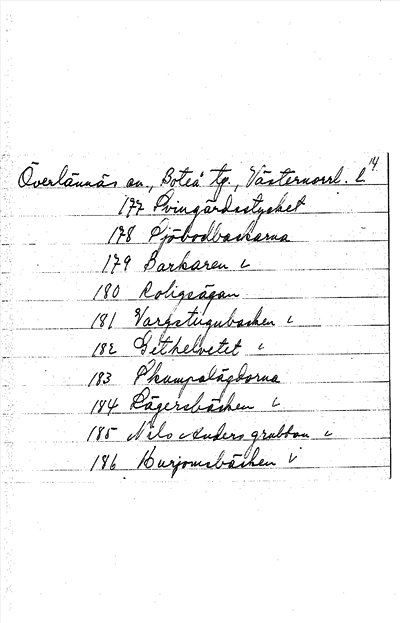 14
Överlännäs sn., Boteå tg., Västernorrl. l.
177 Svingårdsstycket
178 Sjöbodbackarna
179 Barkaren
180 Roligsågan
181 Vargstugubacken
182 Gethelvetet
183 Skumpalägdorna
184 Lägersbäcken
185 Nils Anders grubban
186 Kurjomsbäcken